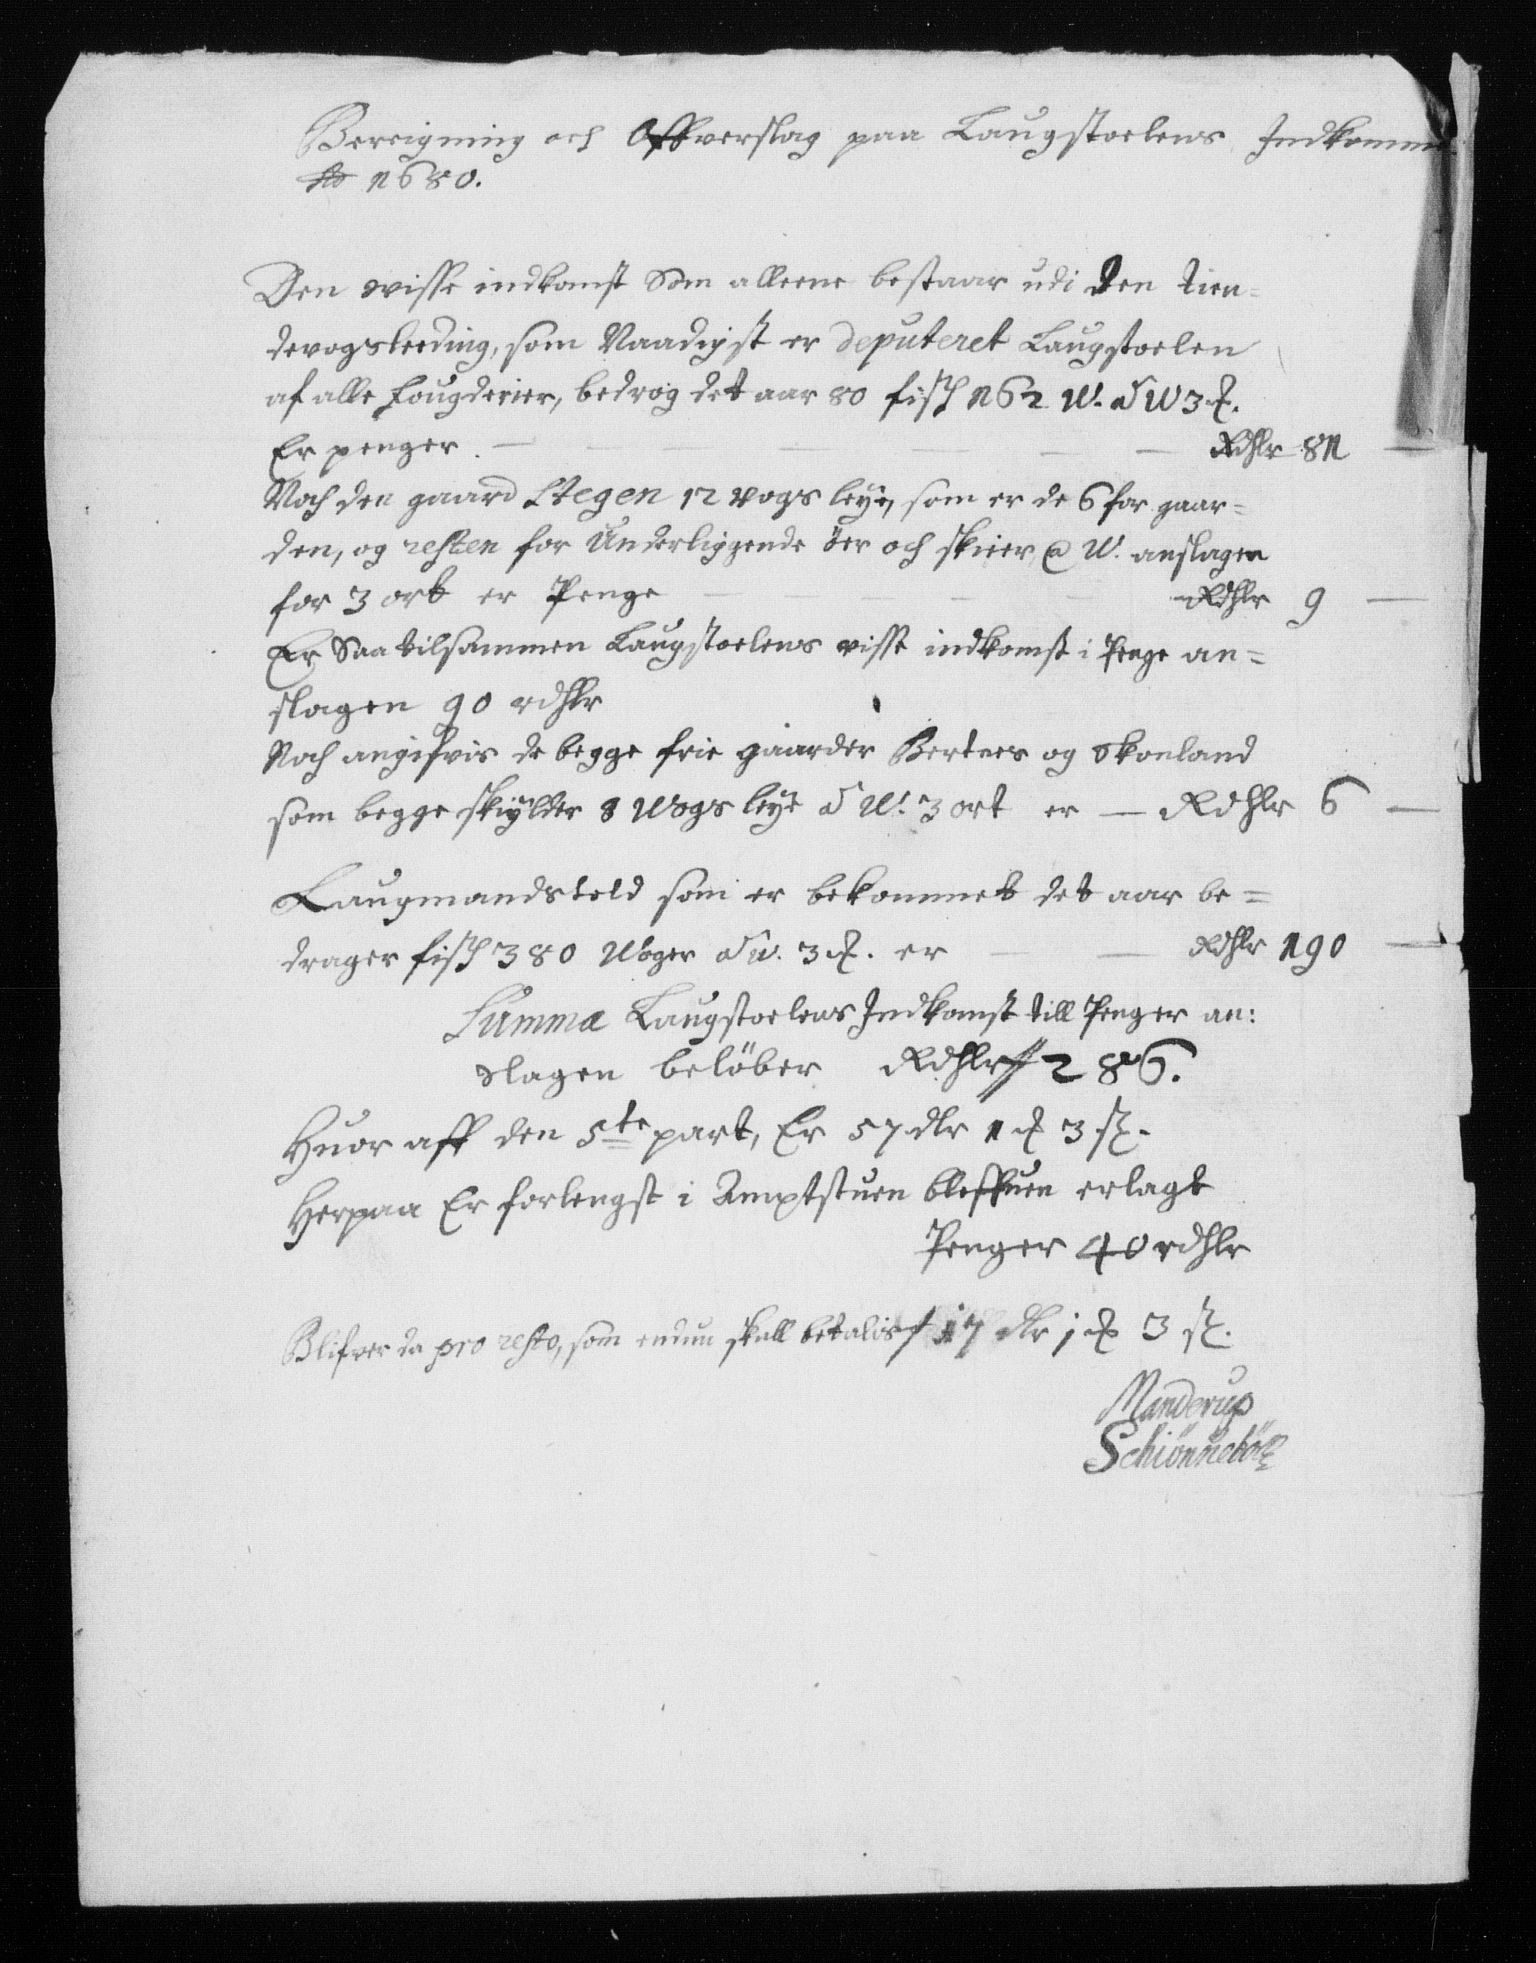 Bereigning och Offverslag paa Laugstoelens Indkomme
Ao 1680.
Den visse indkomst Som alleene bestaar udi den tien=
devogsleeding, som Naadigst er deputeret Laugstoelen
af alle fougderier, bedrog det aar 80 fisch 162 W. a W 3 ort.
Er penger. Rdhlr 81
Noch den gaard Stegen 12 vogs leye, som er de 6 for gaar=
den, og resten for Underliggende öer och skieer, a W. anslagen
for 3 ort er Penge Rdhlr 9
Er Saa tilsammen Laugstoelens visse indkomst i Penge an=
slagen 90 rdhlr
Noch angifvis de begge frie gaarder Bertnes og Skonland
som begge skylder 8 Wogs leye a W. 3 ort er Rdhlr 6
Laugmandstold som er bekommet det aar be=
drager fisch 380 Woger a W. 3 ort. er Rdhlr 190
Summa Laugstoelens Indkomst till Penger an:
slagen belöber Rdhlr 286.
Huor aff den 5te part, Er 57 dlr 1 ort 3 sk.
Herpaa Er forlengst i Amptstuen bleffuen erlagt
Penger 40 rdhlr
Blifver da pro resto, som endnu skall betalis 17 dlr 1 ort 3 sk.
Manderup
Schiønnebøll